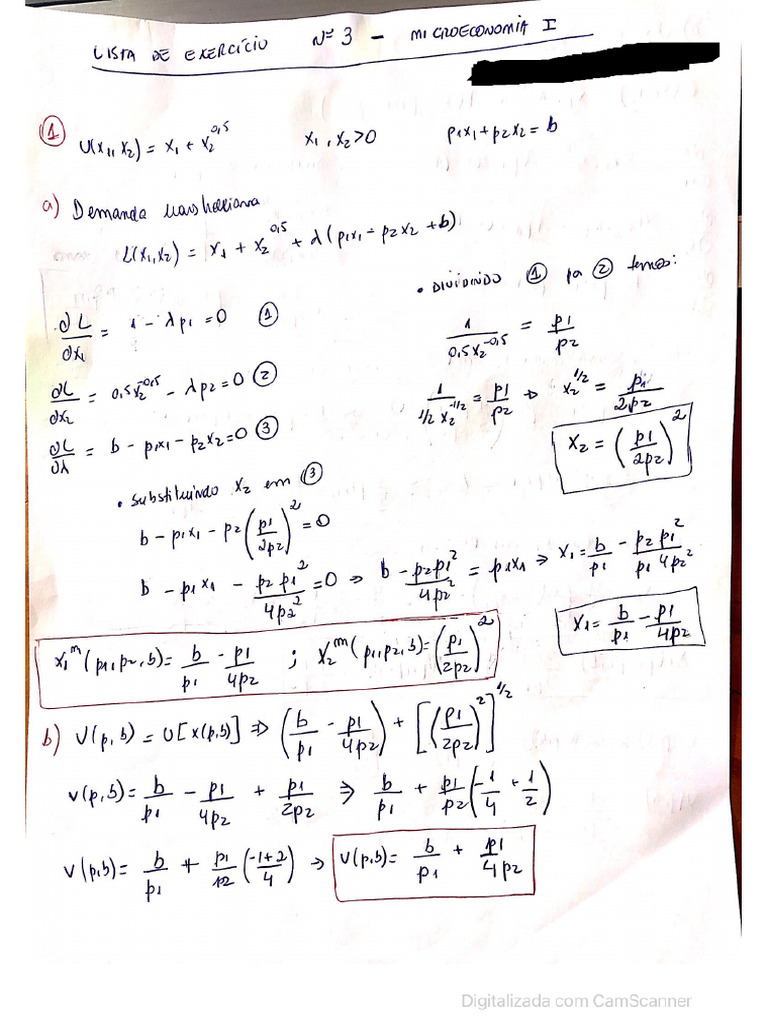 LISTA DE EXERCÍCIO Nº 3 - MICROECONOMIA I
① U(x₁, x₂) = x₁ + x₂^0,5    x₁, x₂ > 0    p₁x₁ + p₂x₂ = b
a) Demanda Marshalliana
L(x₁,x₂) = x₁ + x₂^0,5 + λ(p₁x₁ - p₂x₂ + b)
∂L/∂x₁ = 1 - λp₁ = 0 ①
∂L/∂x₂ = 0,5x₂^-0,5 - λp₂ = 0 ②
∂L/∂λ = b - p₁x₁ - p₂x₂ = 0 ③
• DIVIDINDO ① por ② temos:
1/(0,5x₂^-0,5) = p₁/p₂
1/(1/2 x₂^-1/2) = p₁/p₂ ⇒ x₂^1/2 = p₁/2p₂
x₂ = (p₁/2p₂)²
• Substituindo x₂ em ③
b - p₁x₁ - p₂(p₁/2p₂)² = 0
b - p₁x₁ - p₂p₁²/4p₂² = 0 ⇒ b - p₂p₁²/4p₂² = p₁x₁ ⇒ x₁ = b/p₁ - p₂p₁²/p₁4p₂²
x₁ = b/p₁ - p₁/4p₂
x₁^m(p₁,p₂,b) = b/p₁ - p₁/4p₂ ; x₂^m(p₁,p₂,b) = (p₁/2p₂)²
b) V(p,b) = U[x(p,b)] ⇒ (b/p₁ - p₁/4p₂) + [(p₁/2p₂)²]^1/2
v(p,b) = b/p₁ - p₁/4p₂ + p₁/2p₂ ⇒ b/p₁ + p₁/p₂(-1/4 + 1/2)
v(p,b) = b/p₁ + p₁/p₂((-1+2)/4) → V(p,b) = b/p₁ + p₁/4p₂
Digitalizada com CamScanner